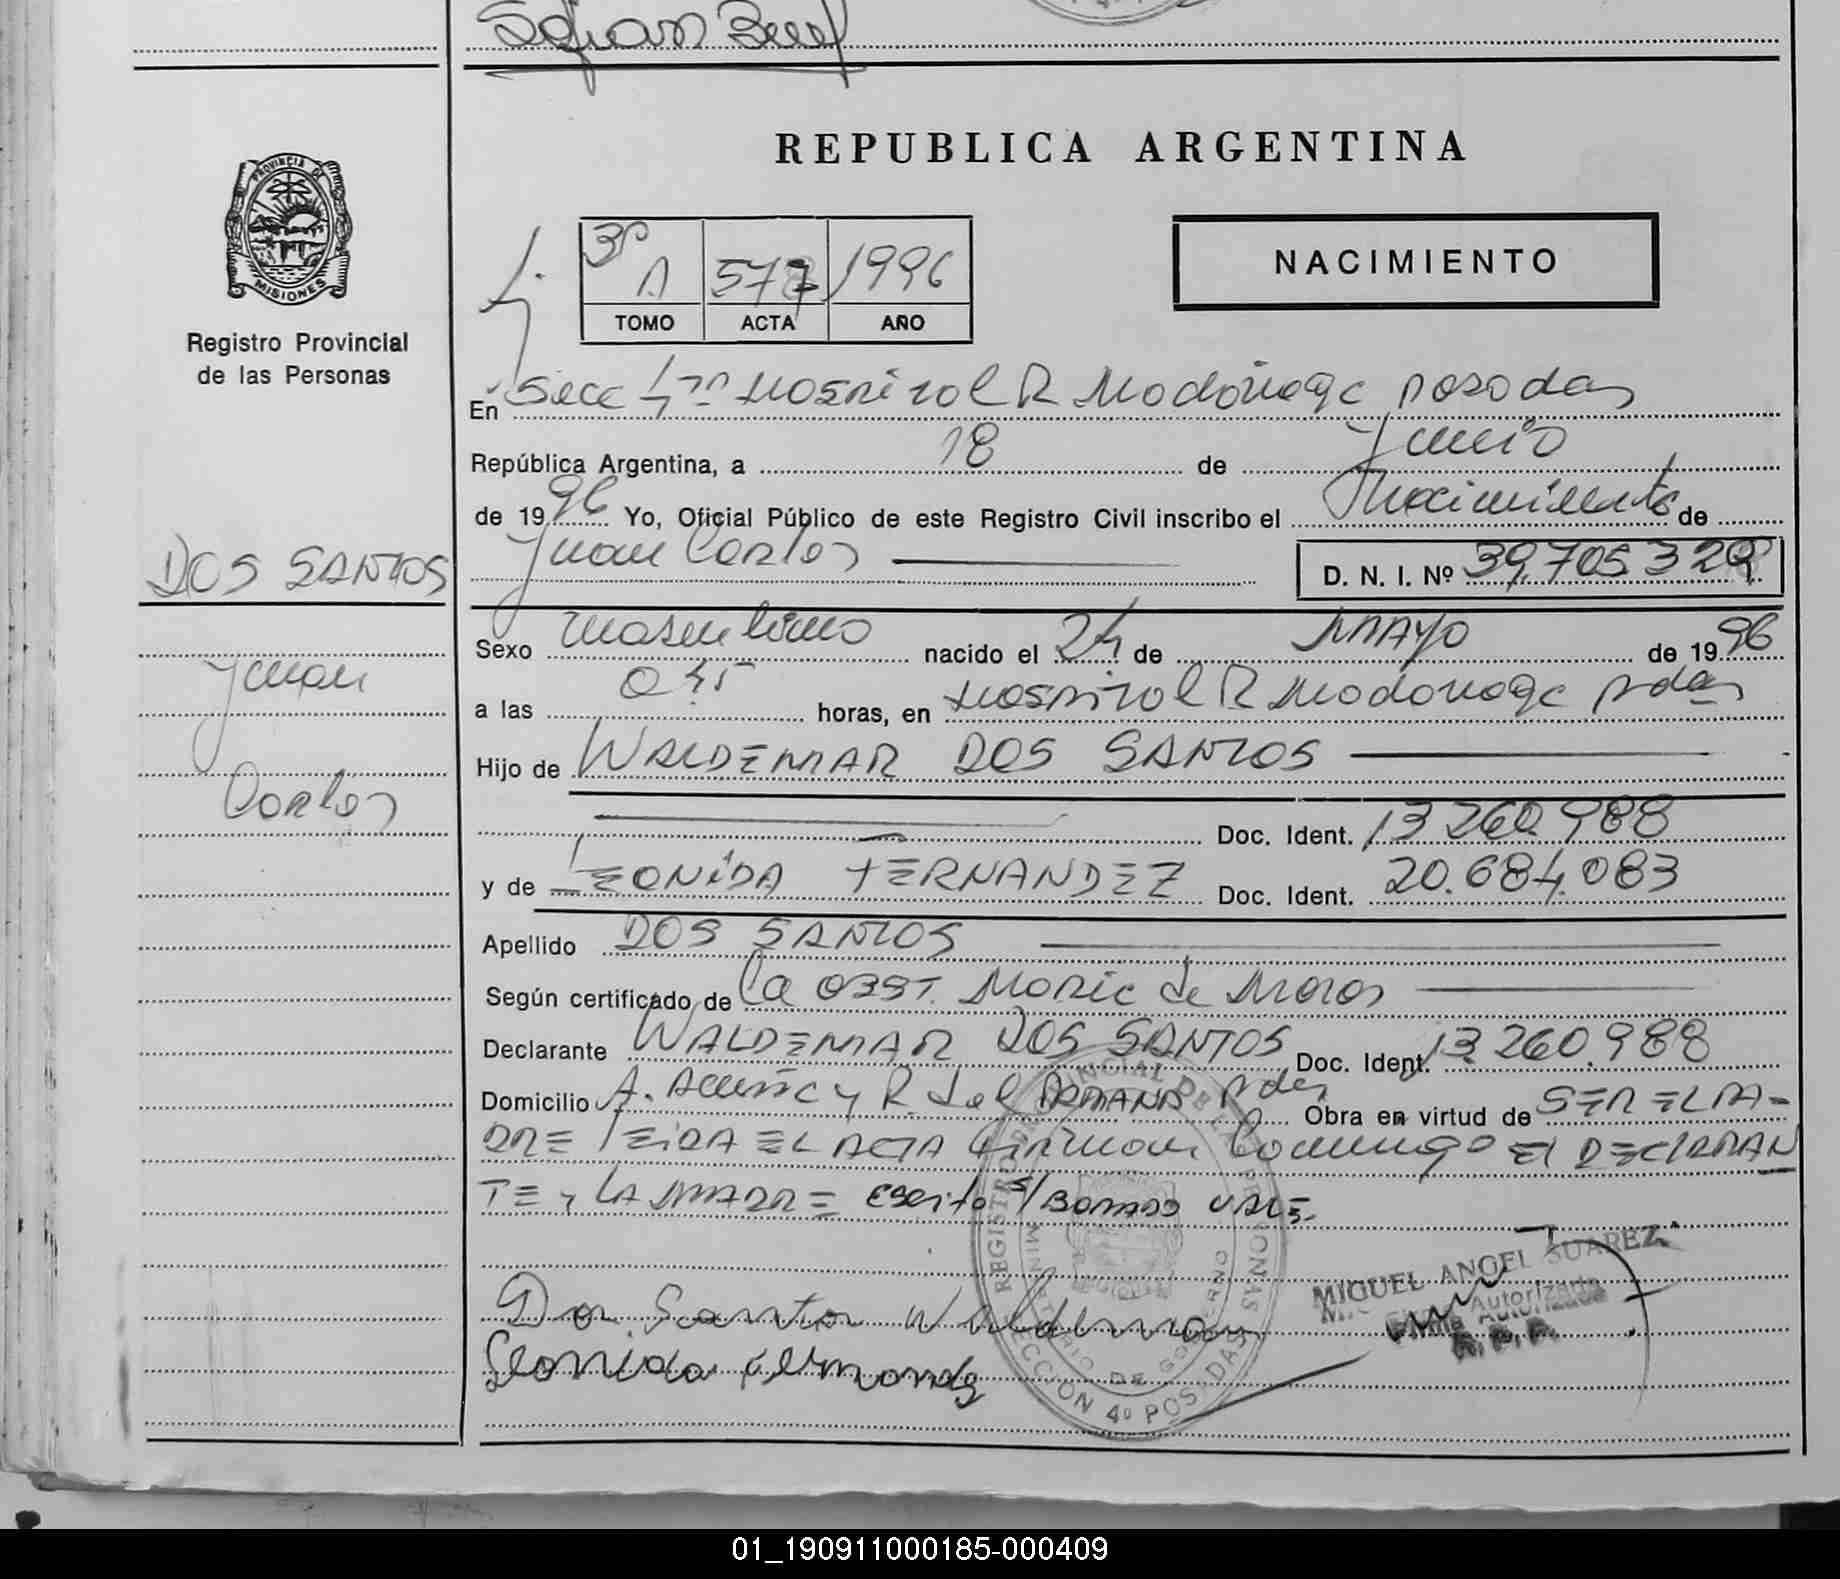 REPUBLICA ARGENTINA
PROVINCIA DE
MISIONES
Registro Provincial
de las Personas
3º A 577 1996
TOMO ACTA AÑO
NACIMIENTO
En Secc Hospital R Madariaga Posadas
República Argentina, a 18 de Junio
de 1996 Yo, Oficial Público de este Registro Civil inscribo el Nacimiento de
Juan Carlos D. N. I. Nº 39.705.329
DOS SANTOS
Juan
Carlos
Sexo masculino nacido el 24 de MAYO de 1996
a las horas, en Hospital R Madariaga Pdas
Hijo de WALDEMAR DOS SANTOS
Doc. Ident. 13.260.988
y de LEONIDA FERNANDEZ Doc. Ident. 20.684.083
Apellido DOS SANTOS
Según certificado de la OBST. de
Declarante WALDEMAR DOS SANTOS Doc. Ident. 13.260.988
Domicilio A. y R. del PARANA Pdas Obra en virtud de SER EL PA-
DRE LEIDA EL ACTA Firman Conmigo El DECLARAN
TE y LA MADRE Escrito s/BORRADO VALE.
Dos Santos Waldemar
Leonida Fernandez
MIGUEL ANGEL SUAREZ
Firma Autorizada
R. P. P.
REGISTRO PROVINCIAL DE LAS PERSONAS
MINISTERIO DE GOBIERNO
SECCION 4º POSADAS
01_190911000185-000409